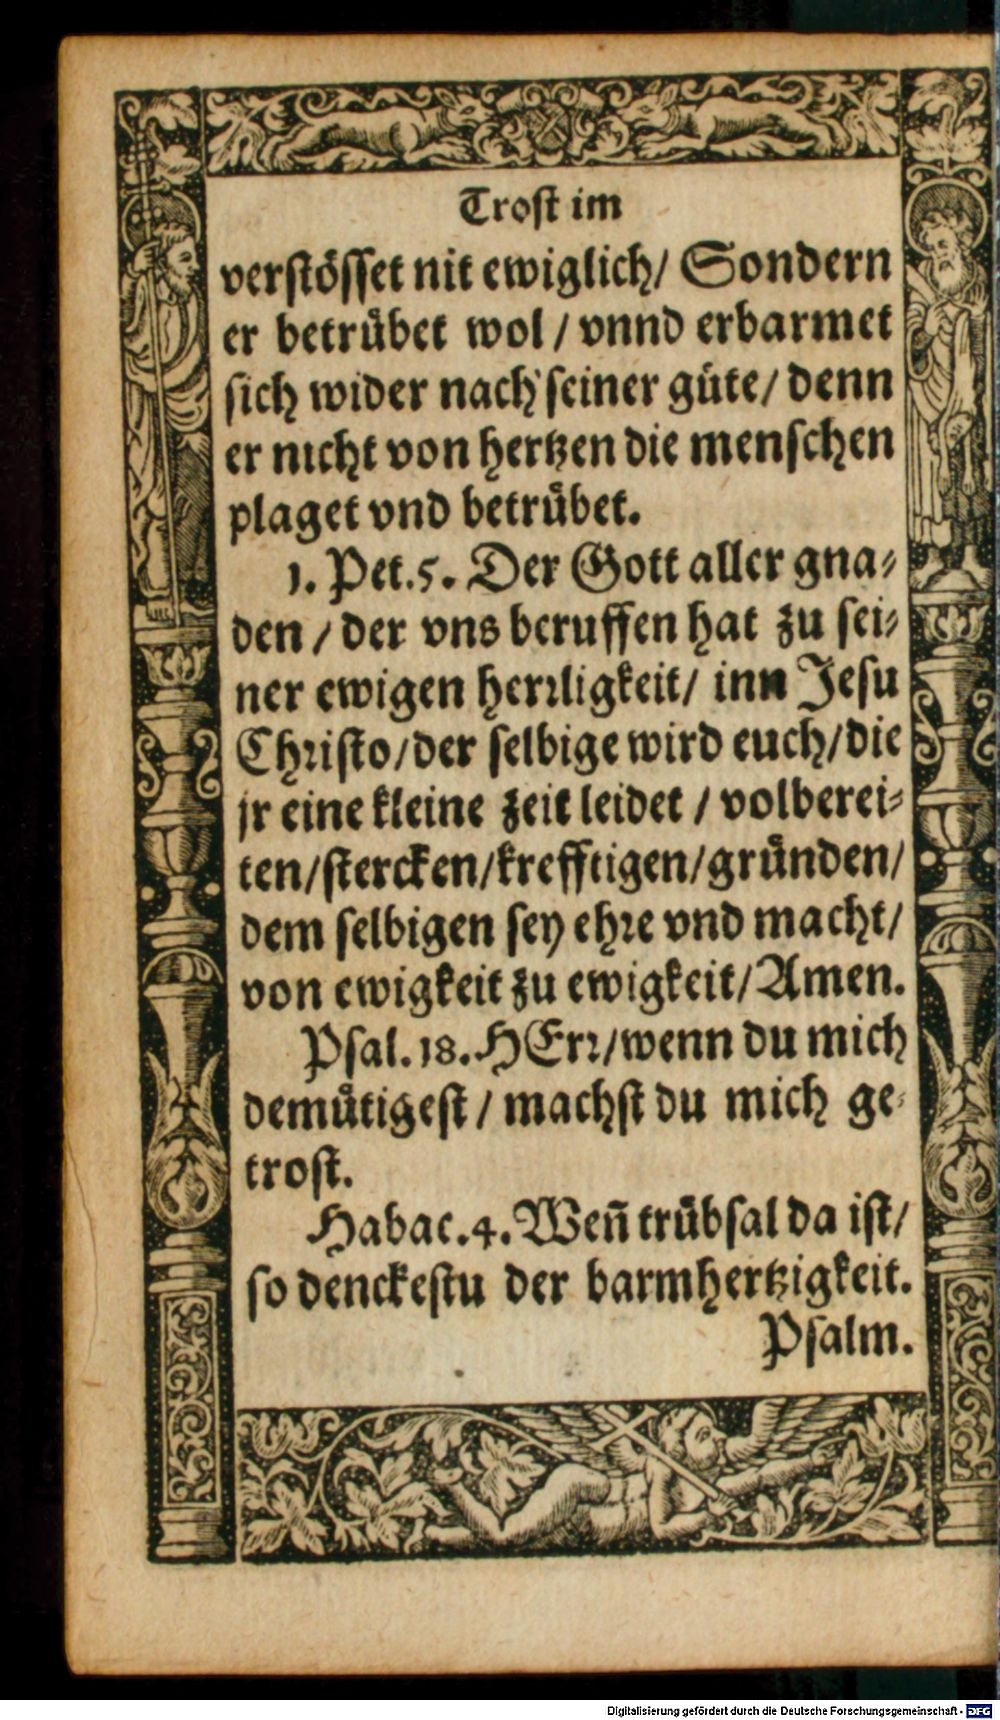 Trost im
verstösset nit ewiglich/ Sondern
er betrübet wol / vnnd erbarmet
sich wider nach seiner güte/ denn
er nicht von hertzen die menschen
plaget vnd betrübet.
1. Pet. 5. Der Gott aller gna-
den / der vns beruffen hat zu sei-
ner ewigen herrligkeit/ inn Jesu
Christo/ der selbige wird euch/ die
jr eine kleine zeit leidet / volberei-
ten/ stercken/ krefftigen/ gründen/
dem selbigen sey ehre vnd macht/
von ewigkeit zu ewigkeit/ Amen.
Psal. 18. HErr/ wenn du mich
demütigest / machst du mich ge-
trost.
Habac. 4. Weñ trübsal da ist/
so denckestu der barmhertzigkeit.
Psalm.
Digitalisierung gefördert durch die Deutsche Forschungsgemeinschaft - DFG